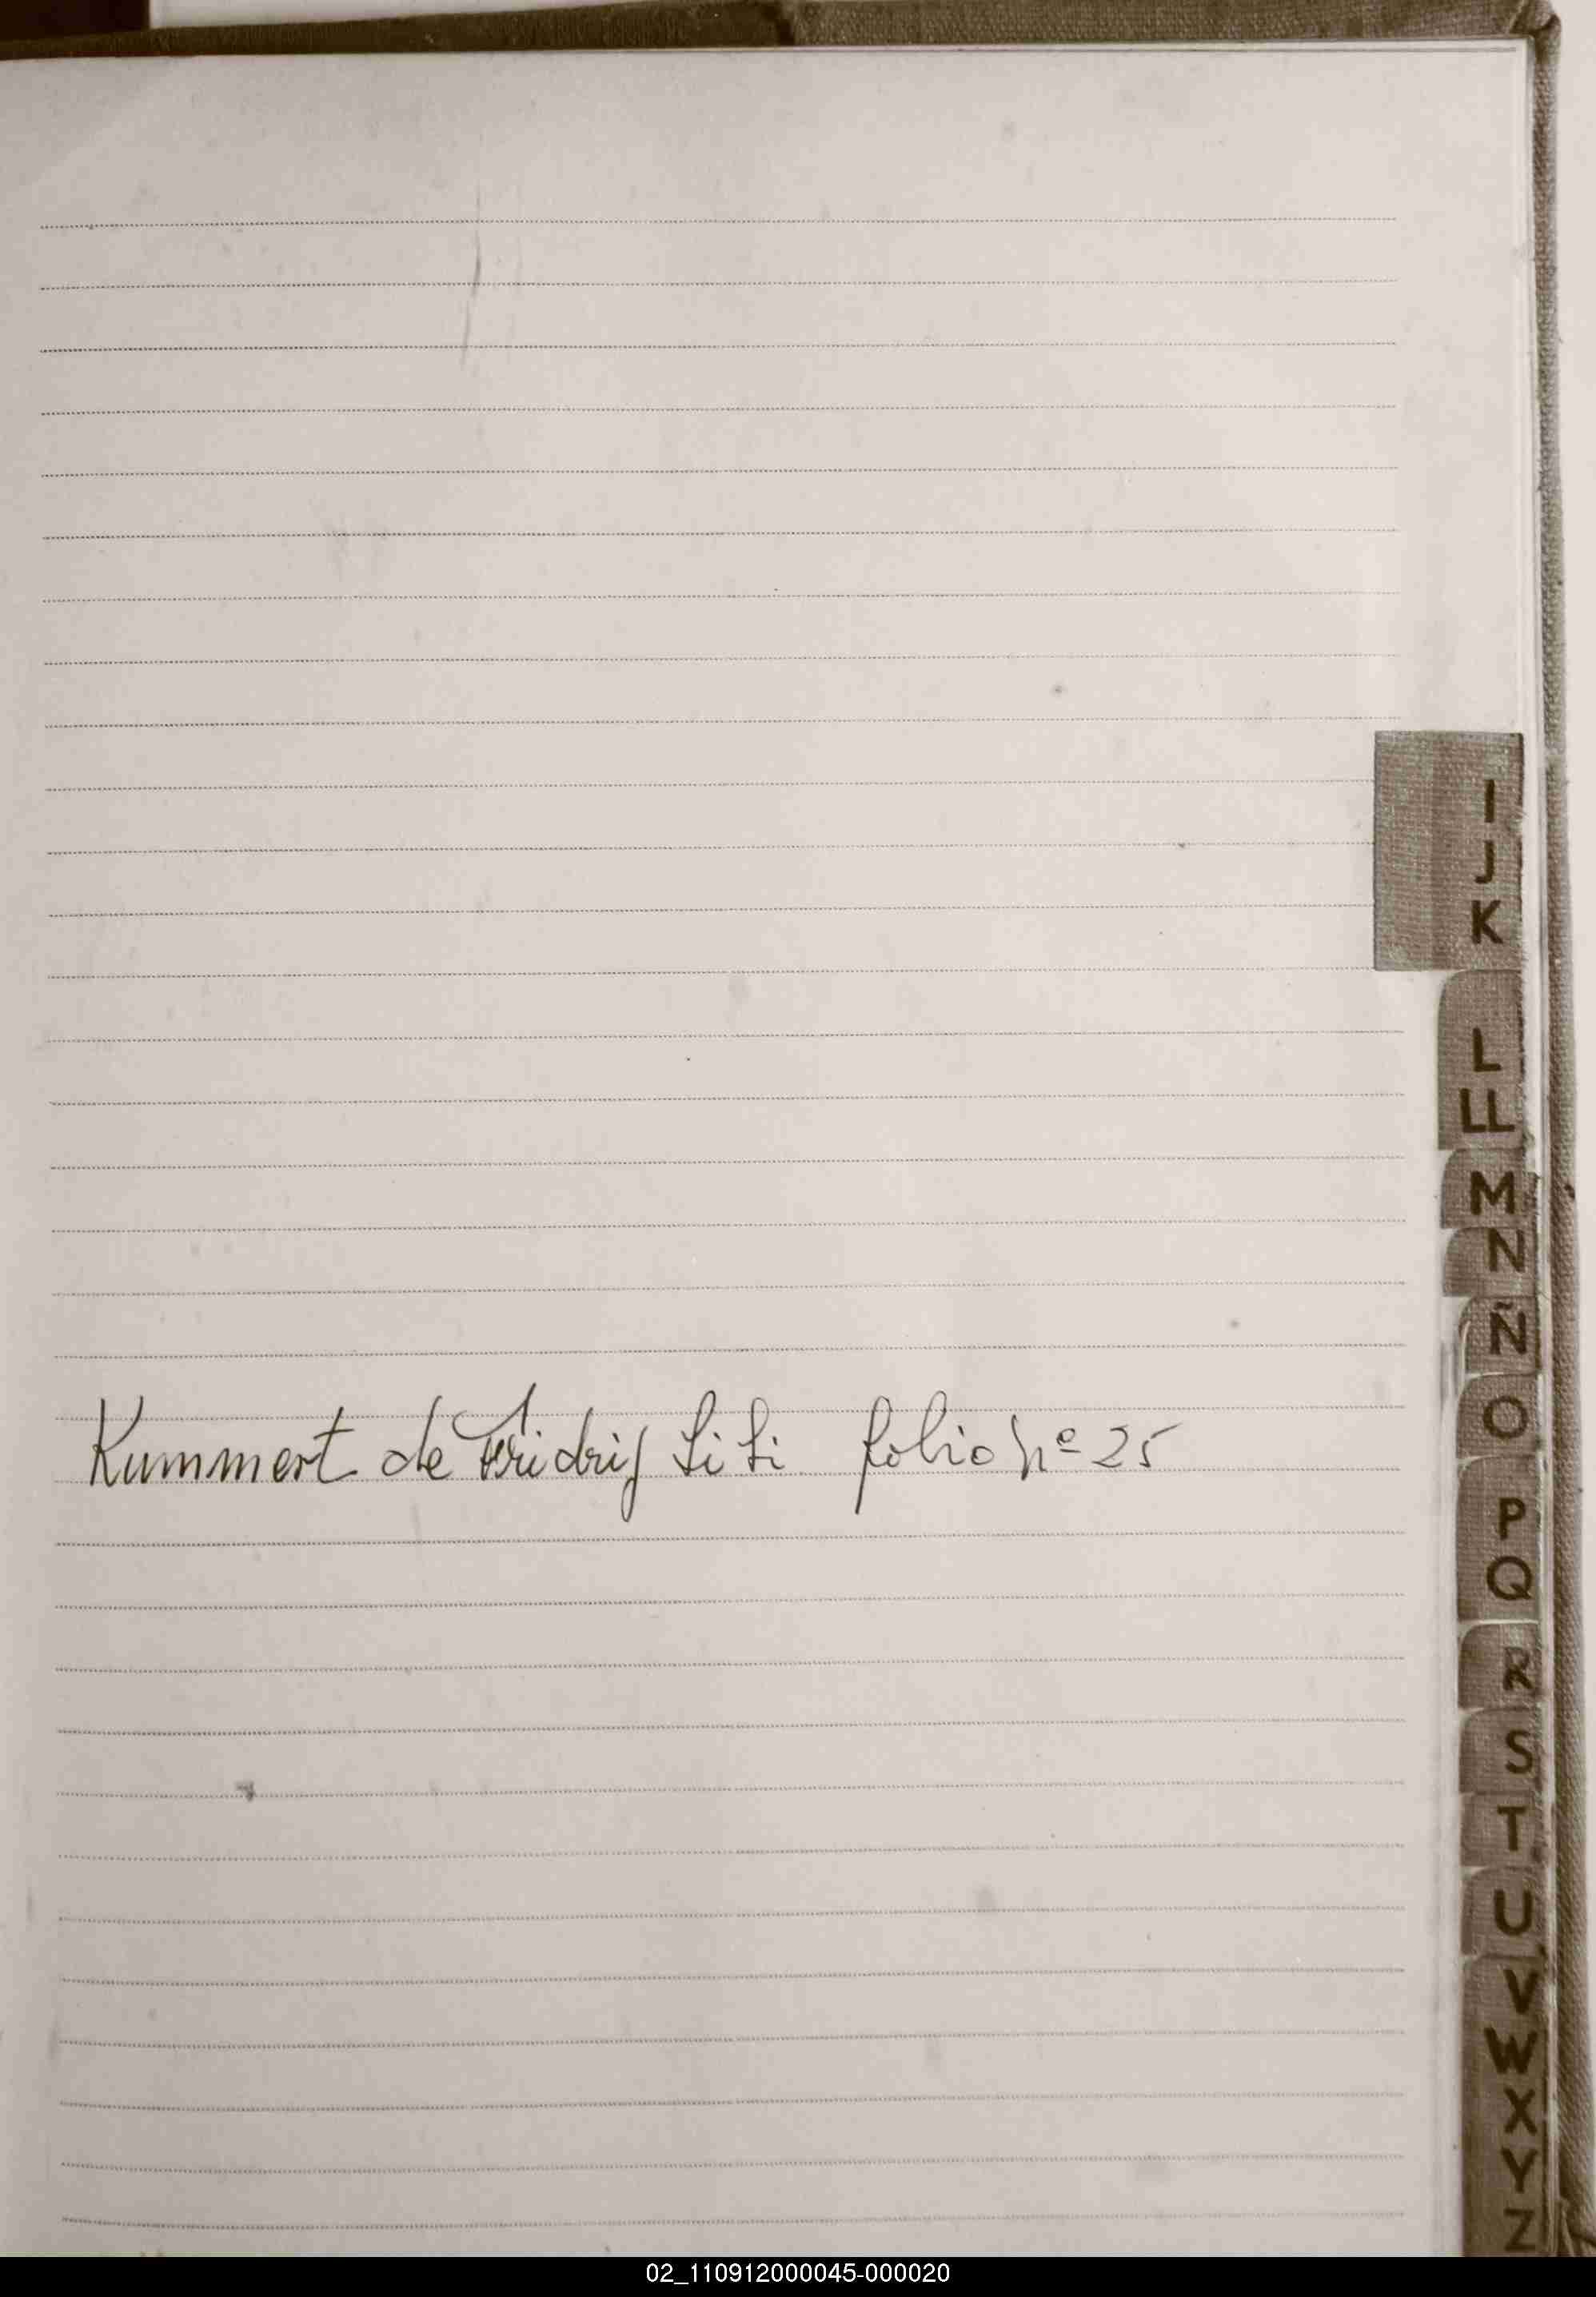 I
J
K
L
LL
M
N
Ñ
O
Kummert de Fridrij Lili folio nº 25
P
Q
R
S
T
U
V
W
X
Y
Z
02_110912000045-000020